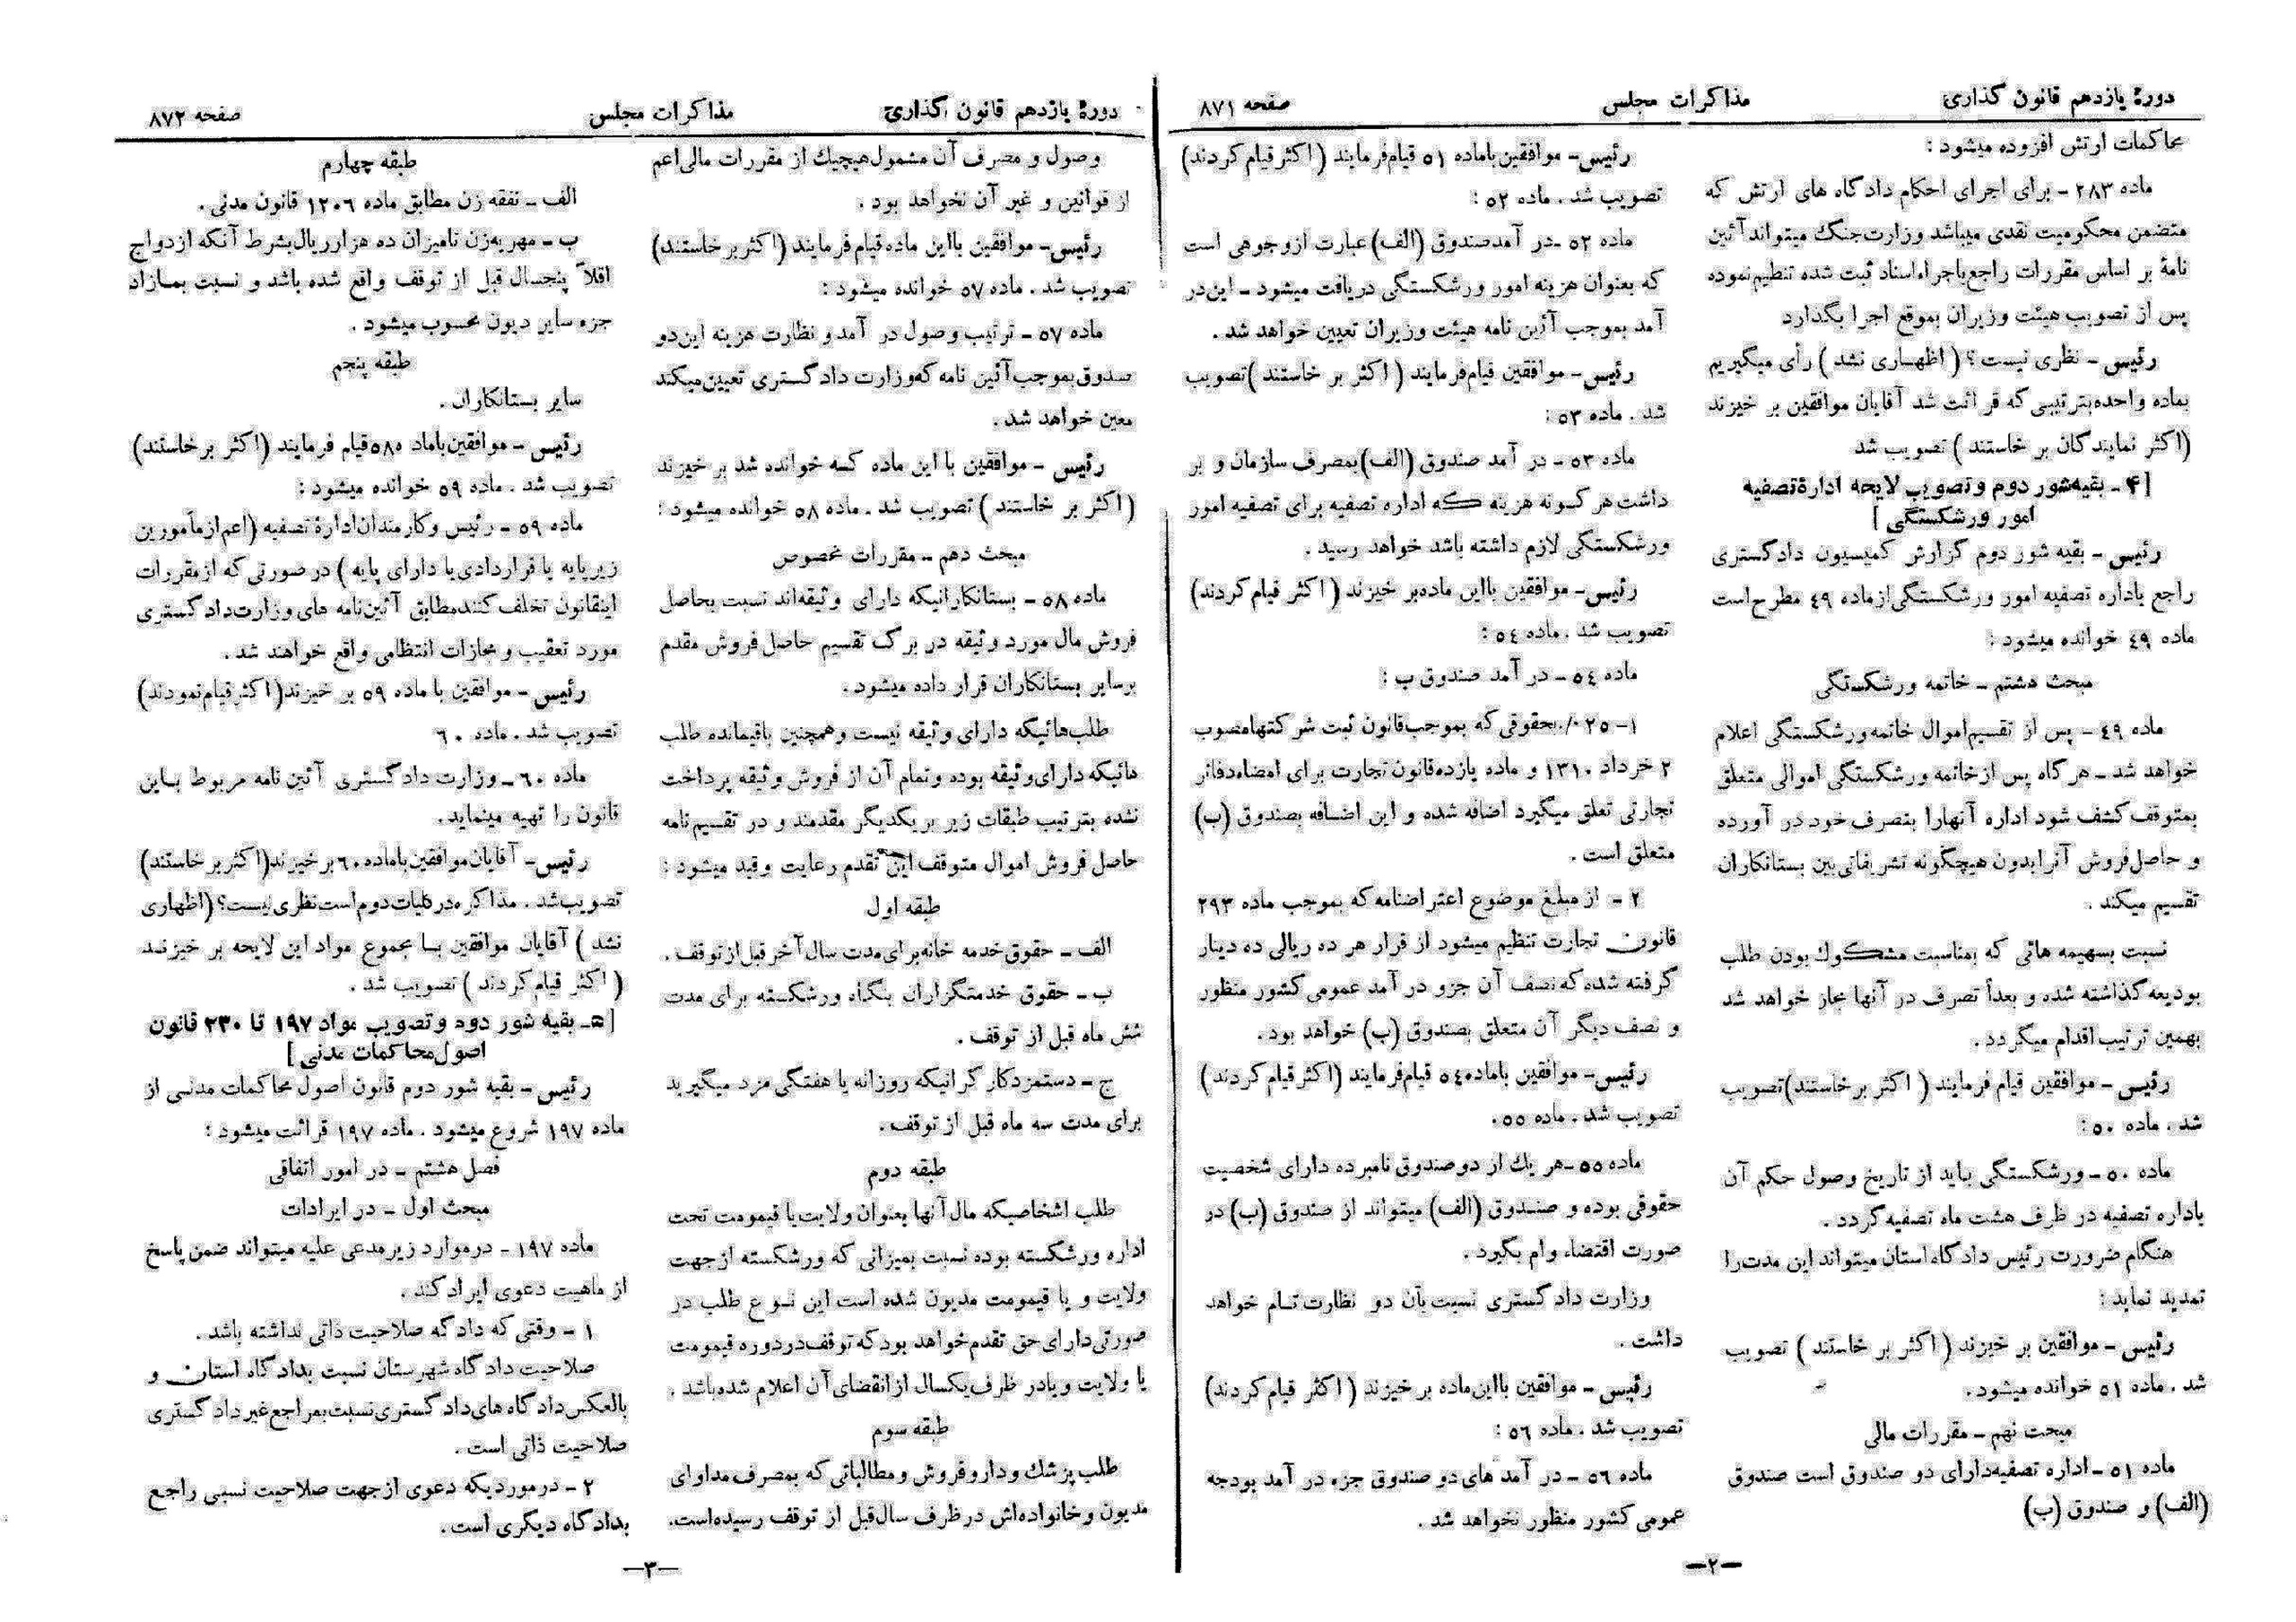 دورهٔ یازدهم قانون گذاری
مذاکرات مجلس
صفحه ۸۷۱
محاکمات ارتش افزوده میشود :
ماده ۲۸۳ - برای اجرای احکام دادگاه های ارتش که
متضمن محکومیت نقدی میباشد وزارت جنگ میتواند آئین
نامهٔ بر اساس مقررات راجع باجراء اسناد ثبت شده تنظیم نموده
پس از تصویب هیئت وزیران بموقع اجرا بگذارد
رئیس - نظری نیست ؟ ( اظهاری نشد ) رأی میگیریم
بماده واحده بترتیبی که قرائت شد آقایان موافقین بر خیزند
(اکثر نمایندگان بر خاستند ) تصویب شد
[ ۴ - بقیه شور دوم و تصویب لایحه ادارهٔ تصفیه
امور ورشکستگی ]
رئیس - بقیه شور دوم گزارش کمیسیون دادگستری
راجع باداره تصفیه امور ورشکستگی از ماده ٤٩ مطرح است
ماده ٤٩ خوانده میشود :
مبحث هشتم - خاتمه ورشکستگی
ماده ٤٩ - پس از تقسیم اموال خاتمه ورشکستگی اعلام
خواهد شد - هر گاه پس از خاتمه ورشکستگی اموالی متعلق
بمتوقف کشف شود اداره آنهارا بتصرف خود در آورده
و حاصل فروش آنرا بدون هیچگونه تشریفاتی بین بستانکاران
تقسیم میکند .
نسبت بسهیمه هائی که بمناسبت مشکوك بودن طلب
بودیعه گذاشته شده و بعداً تصرف در آنها مجاز خواهد شد
بهمین ترتیب اقدام میگردد .
رئیس - موافقین قیام فرمایند ( اکثر بر خاستند) تصویب
شد . ماده ۵۰ :
ماده ۵۰ - ورشکستگی باید از تاریخ وصول حکم آن
باداره تصفیه در ظرف هشت ماه تصفیه گردد .
هنگام ضرورت رئیس دادگاه استان میتواند این مدت را
تمدید نماید :
رئیس - موافقین بر خیزند ( اکثر بر خاستند ) تصویب
شد . ماده ۵۱ خوانده میشود .
مبحث نهم - مقررات مالی
ماده ۵۱ - اداره تصفیه دارای دو صندوق است صندوق
(الف) و صندوق (ب)
رئیس - موافقین باماده ۵۱ قیام فرمایند ( اکثر قیام کردند)
تصویب شد . ماده ۵۲ :
ماده ۵۲ - در آمد صندوق (الف) عبارت از وجوهی است
که بعنوان هزینه امور ورشکستگی دریافت میشود - این در
آمد بموجب آئین نامه هیئت وزیران تعیین خواهد شد .
رئیس - موافقین قیام فرمایند ( اکثر بر خاستند ) تصویب
شد . ماده ۵۳ :
ماده ۵۳ - در آمد صندوق (الف) بمصرف سازمان و بر
داشت هر گونه هزینه که اداره تصفیه برای تصفیه امور
ورشکستگی لازم داشته باشد خواهد رسید .
رئیس - موافقین بااین ماده بر خیزند ( اکثر قیام کردند)
تصویب شد . ماده ٥٤ :
ماده ٥٤ - در آمد صندوق ب :
۱- ۲۵ ٠/٠ بحقوقی که بموجب قانون ثبت شرکتها مصوب
۲ خرداد ۱۳۱۰ و ماده یازده قانون تجارت برای امضاء دفاتر
تجارتی تعلق میگیرد اضافه شده و این اضافه بصندوق (ب)
متعلق است .
۲ - از مبلغ موضوع اعتراضنامه که بموجب ماده ۲۹۳
قانون تجارت تنظیم میشود از قرار هر ده ریالی ده دینار
گرفته شده که نصف آن جزو در آمد عمومی کشور منظور
و نصف دیگر آن متعلق بصندوق (ب) خواهد بود .
رئیس - موافقین باماده ٥٤ قیام فرمایند (اکثر قیام کردند )
تصویب شد . ماده ۵۵ .
ماده ۵۵ - هر یك از دو صندوق نامبرده دارای شخصیت
حقوقی بوده و صندوق (الف) میتواند از صندوق (ب) در
صورت اقتضاء وام بگیرد .
وزارت دادگستری نسبت بآن دو نظارت تام خواهد
داشت .
رئیس - موافقین بااین ماده بر خیزند ( اکثر قیام کردند)
تصویب شد . ماده ٥٦ :
ماده ٥٦ - در آمد های دو صندوق جزء در آمد بودجه
عمومی کشور منظور نخواهد شد .
-۲-
دورهٔ یازدهم قانون گذاری
مذاکرات مجلس
صفحه ۸۷۲
وصول و مصرف آن مشمول هیچیك از مقررات مالی اعم
از قوانین و غیر آن نخواهد بود .
رئیس - موافقین بااین ماده قیام فرمایند (اکثر بر خاستند)
تصویب شد . ماده ۵۷ خوانده میشود :
ماده ۵۷ - ترتیب وصول در آمد و نظارت هزینه این دو
صندوق بموجب آئین نامه که وزارت دادگستری تعیین میکند
معین خواهد شد .
رئیس - موافقین با این ماده که خوانده شد بر خیزند
(اکثر بر خاستند ) تصویب شد . ماده ۵۸ خوانده میشود :
مبحث دهم - مقررات مخصوص
ماده ۵۸ - بستانکارانیکه دارای وثیقه‌اند نسبت بحاصل
فروش مال مورد وثیقه در برگ تقسیم حاصل فروش مقدم
برسایر بستانکاران قرار داده میشود .
طلب هائیکه دارای وثیقه نیست و همچنین باقیمانده طلب
هائیکه دارای وثیقه بوده و تمام آن از فروش وثیقه پرداخت
نشده بترتیب طبقات زیر بریکدیگر مقدمند و در تقسیم نامه
حاصل فروش اموال متوقف این تقدم رعایت و قید میشود :
طبقه اول
الف - حقوق خدمه خانه برای مدت سال آخر قبل از توقف .
ب - حقوق خدمتگزاران بنگاه ورشکسته برای مدت
شش ماه قبل از توقف .
ج - دستمزد کارگرانیکه روزانه یا هفتگی مزد میگیرند
برای مدت سه ماه قبل از توقف .
طبقه دوم
طلب اشخاصیکه مال آنها بعنوان ولایت یا قیمومت تحت
اداره ورشکسته بوده نسبت بمیزانی که ورشکسته از جهت
ولایت و یا قیمومت مدیون شده است این نوع طلب در
صورتی دارای حق تقدم خواهد بود که توقف در دوره قیمومت
یا ولایت و یا در ظرف یکسال از انقضای آن اعلام شده باشد .
طبقه سوم
طلب پزشك و داروفروش و مطالباتی که بمصرف مداوای
مدیون و خانواده‌اش در ظرف سال قبل از توقف رسیده است.
طبقه چهارم
الف - نفقه زن مطابق ماده ۱۲۰۶ قانون مدنی .
ب - مهریه زن تامیزان ده هزار ریال بشرط آنکه ازدواج
اقلاً پنجسال قبل از توقف واقع شده باشد و نسبت بمازاد
جزء سایر دیون محسوب میشود .
طبقه پنجم
سایر بستانکاران .
رئیس - موافقین باماده ۵۸ قیام فرمایند (اکثر بر خاستند)
تصویب شد . ماده ۵۹ خوانده میشود :
ماده ۵۹ - رئیس و کارمندان ادارهٔ تصفیه (اعم از مأمورین
زیر پایه یا قراردادی یا دارای پایه ) در صورتی که از مقررات
اینقانون تخلف کنند مطابق آئین نامه های وزارت دادگستری
مورد تعقیب و مجازات انتظامی واقع خواهند شد .
رئیس - موافقین با ماده ۵۹ بر خیزند (اکثر قیام نمودند)
تصویب شد . ماده ٦٠
ماده ٦٠ - وزارت دادگستری آئین نامه مربوط باین
قانون را تهیه مینماید .
رئیس - آقایان موافقین باماده ٦٠ بر خیزند (اکثر بر خاستند)
تصویب شد . مذاکره در کلیات دوم است نظری نیست؟ (اظهاری
نشد ) آقایان موافقین با مجموع مواد این لایحه بر خیزند
( اکثر قیام کردند ) تصویب شد .
[۵- بقیه شور دوم و تصویب مواد ۱۹۷ تا ۲۳۰ قانون
اصول محاکمات مدنی ]
رئیس - بقیه شور دوم قانون اصول محاکمات مدنی از
ماده ۱۹۷ شروع میشود . ماده ۱۹۷ قرائت میشود :
فصل هشتم - در امور اتفاقی
مبحث اول - در ایرادات
ماده ۱۹۷ - در موارد زیر مدعی علیه میتواند ضمن پاسخ
از ماهیت دعوی ایراد کند .
۱ - وقتی که دادگه صلاحیت ذاتی نداشته باشد .
صلاحیت دادگاه شهرستان نسبت بدادگاه استان و
بالعکس دادگاه های دادگستری نسبت بمراجع غیر دادگستری
صلاحیت ذاتی است .
۲ - در موردیکه دعوی از جهت صلاحیت نسبی راجع
بدادگاه دیگری است .
-۳-